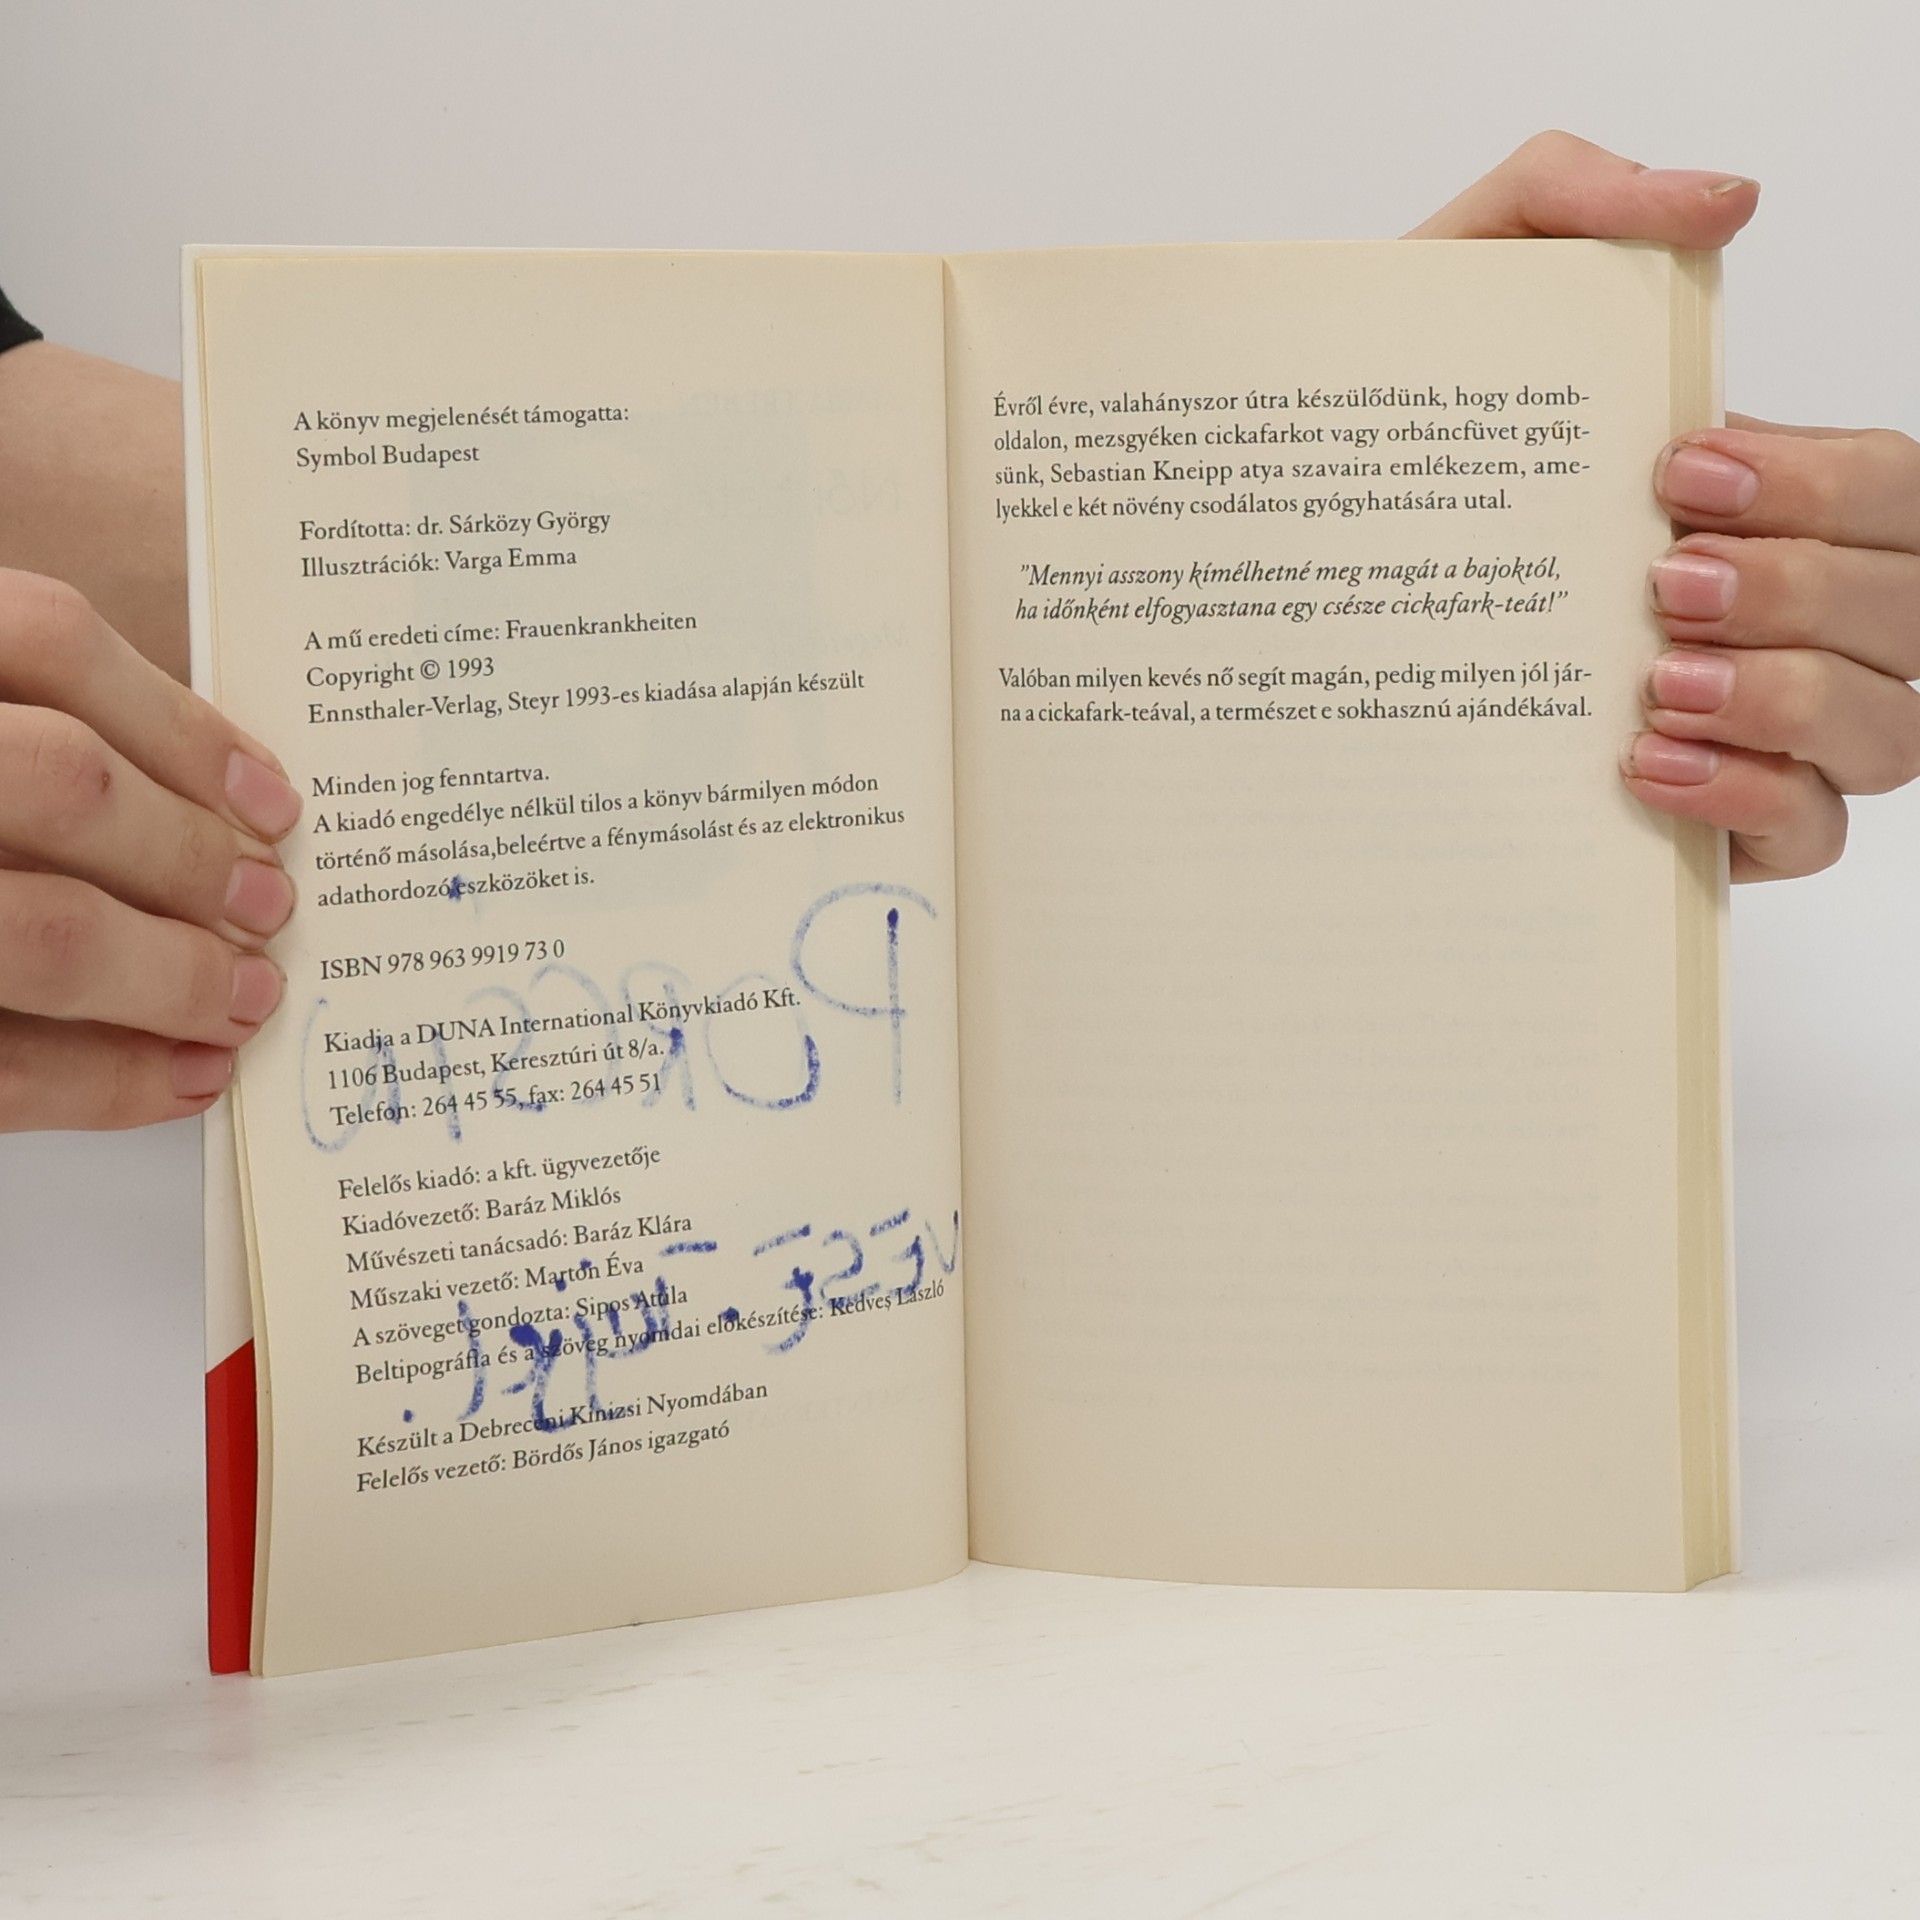 A könyv megjelenését támogatta:
Symbol Budapest
Fordította: dr. Sárközy György
Illusztrációk: Varga Emma
A mű eredeti címe: Frauenkrankheiten
Copyright © 1993
Ennsthaler-Verlag, Steyr 1993-es kiadása alapján készült
Minden jog fenntartva.
A kiadó engedélye nélkül tilos a könyv bármilyen módon
történő másolása,beleértve a fénymásolást és az elektronikus
adathordozó eszközöket is.
ISBN 978 963 9919 73 0
Kiadja a DUNA International Könyvkiadó Kft.
1106 Budapest, Keresztúri út 8/a.
Telefon: 264 45 55, fax: 264 45 51
Felelős kiadó: a kft. ügyvezetője
Kiadóvezető: Baráz Miklós
Művészeti tanácsadó: Baráz Klára
Műszaki vezető: Marton Éva
A szöveget gondozta: Sipos Attila
Beltipográfia és a szöveg nyomdai előkészítése: Kedves László
Készült a Debreceni Kinizsi Nyomdában
Felelős vezető: Bördős János igazgató
Évről évre, valahányszor útra készülődünk, hogy domb-
oldalon, mezsgyéken cickafarkot vagy orbáncfüvet gyűjt-
sünk, Sebastian Kneipp atya szavaira emlékezem, ame-
lyekkel e két növény csodálatos gyógyhatására utal.
"Mennyi asszony kímélhetné meg magát a bajoktól,
ha időnként elfogyasztana egy csésze cickafark-teát!"
Valóban milyen kevés nő segít magán, pedig milyen jól jár-
na a cickafark-teával, a természet e sokhasznú ajándékával.